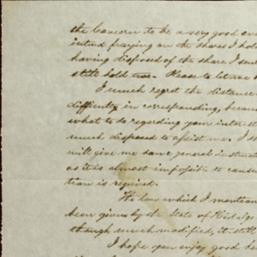 the concern to be a very good one
intend praying on the shares I hold
having disposed of the share I
still hold Please to let me
I much regret the distance
difficulty in corresponding, because
what to do regarding your interest
much disposed to assist me. I
will give me some general instructions
as it is almost impossible to
tion is required.
The law which I mention
been given by the State of Hidalgo
though much modified, it still
I hope you enjoy good